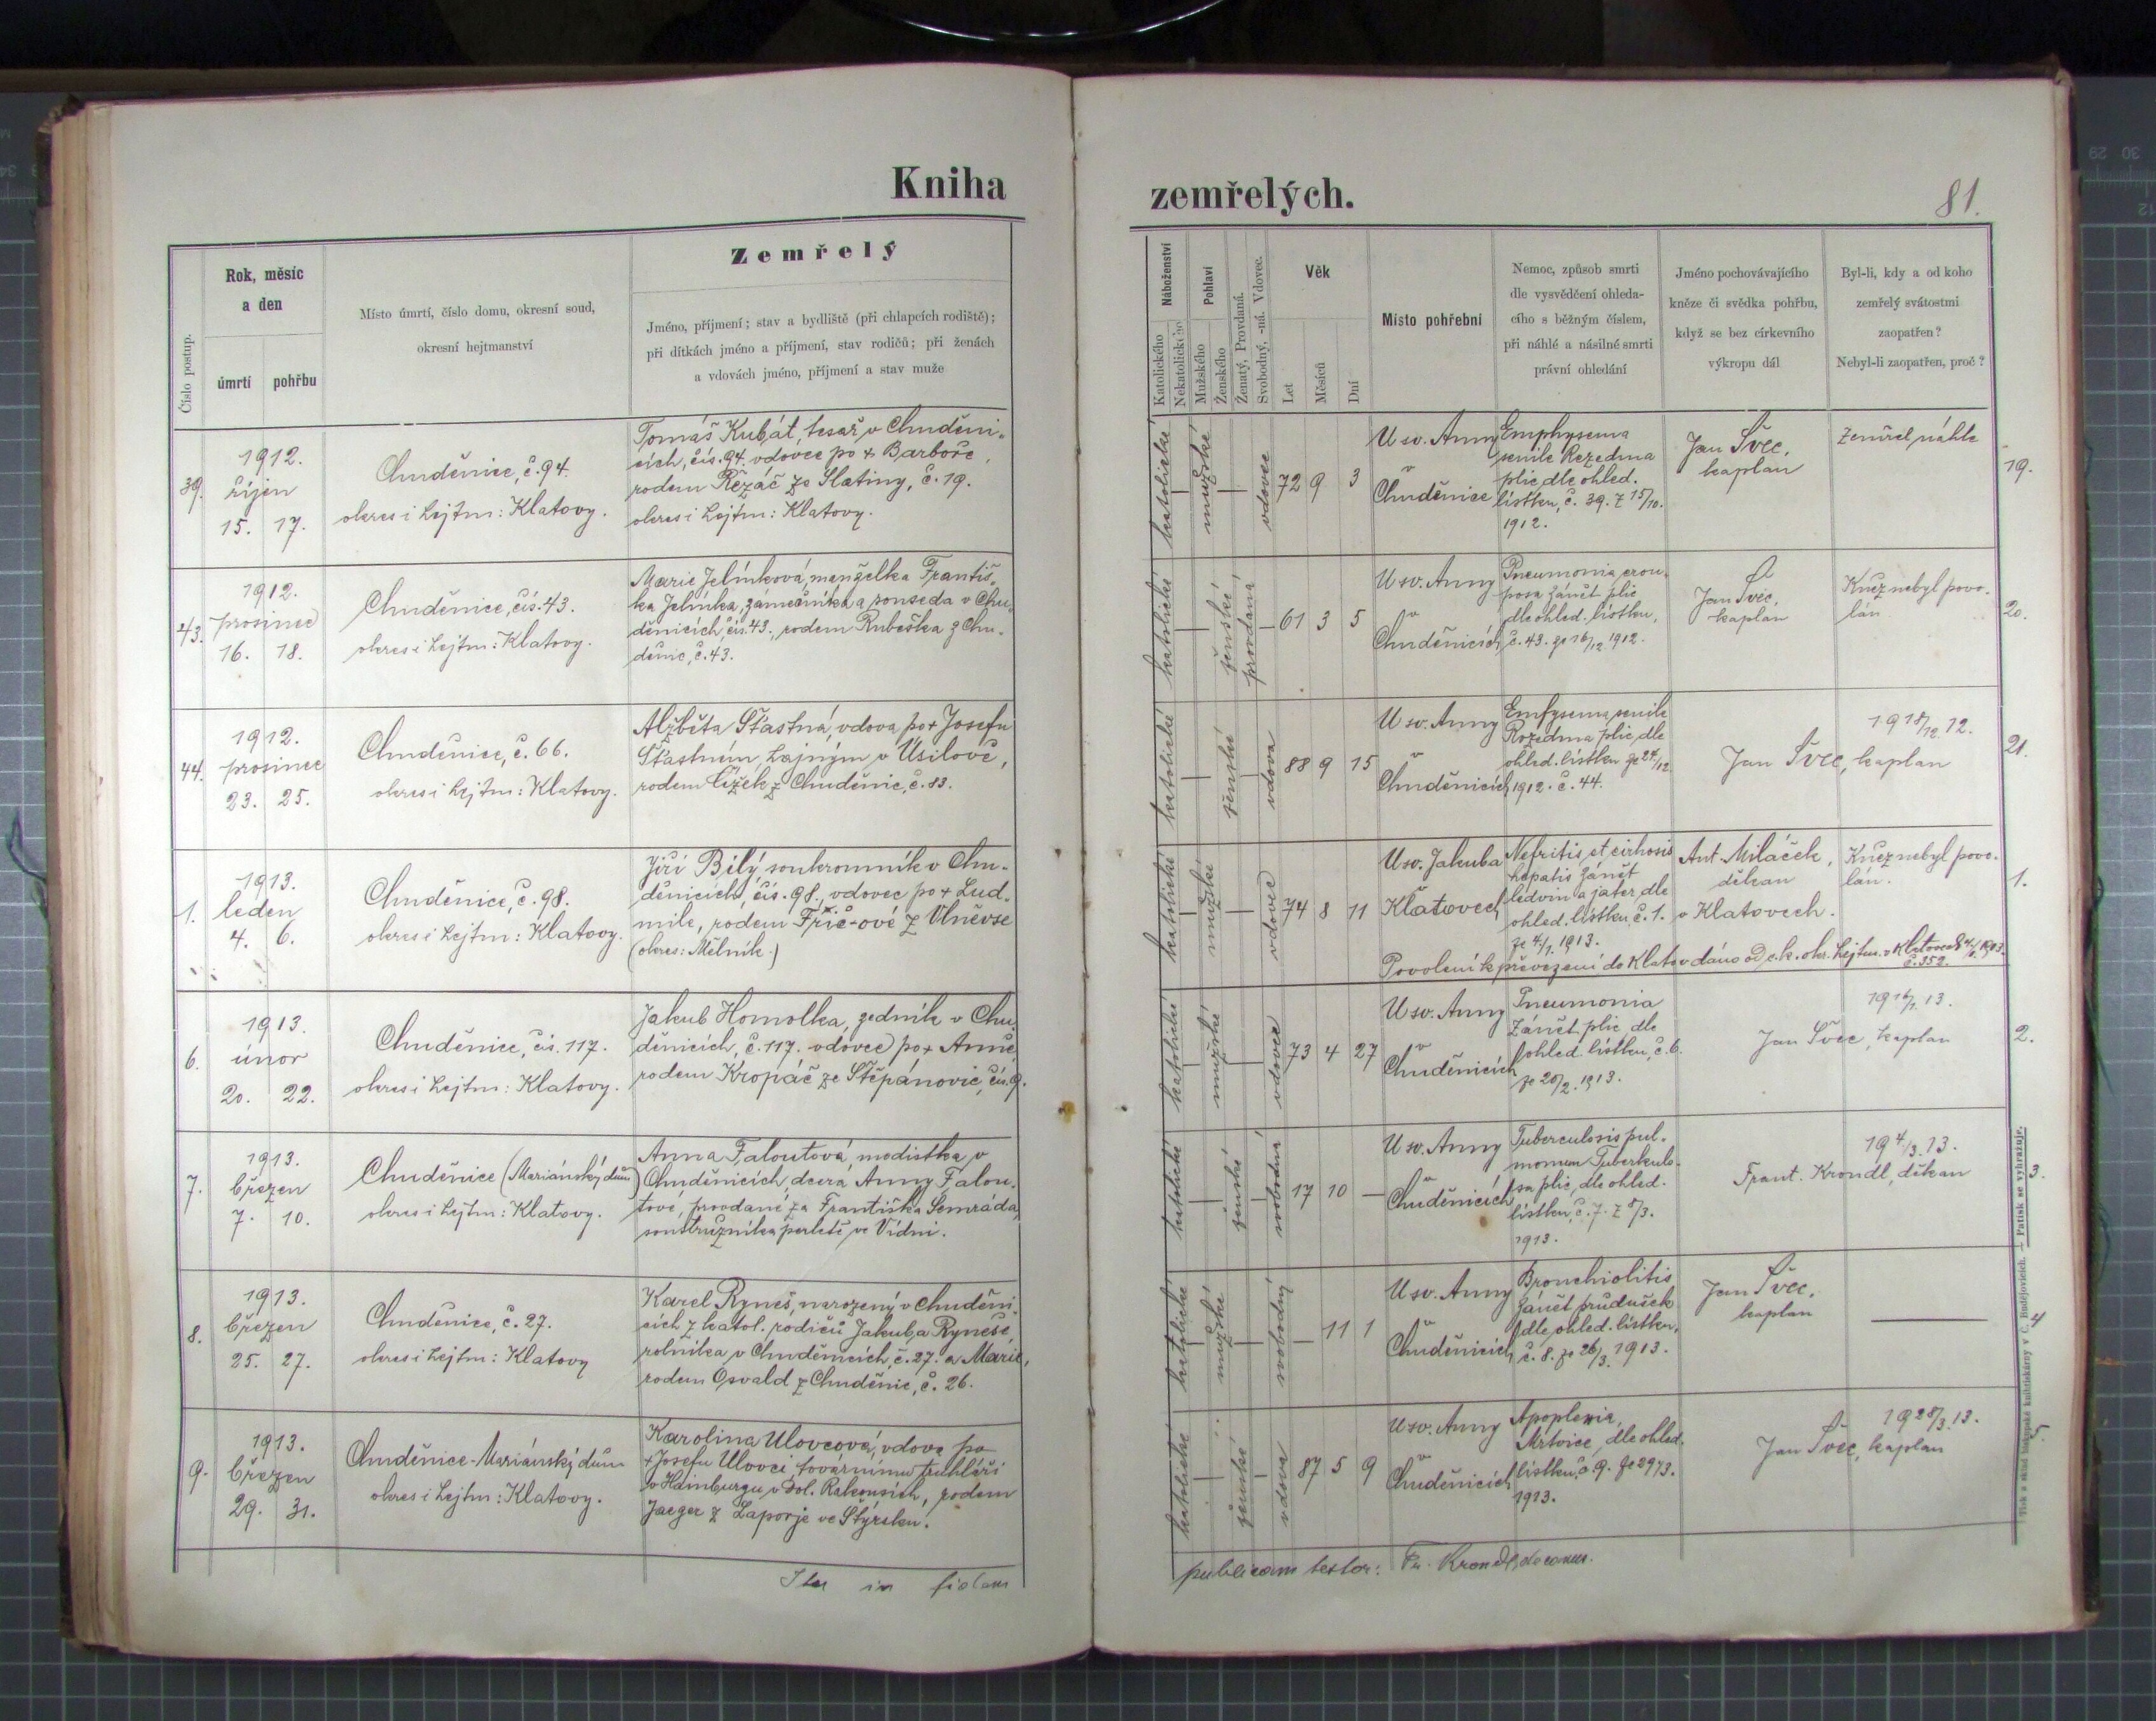 Kniha
zemřelých.
81.
Číslo postup.
Rok, měsíc
a den
úmrtí
pohřbu
Místo úmrtí, číslo domu, okresní soud,
okresní hejtmanství
Zemřelý
Jméno, příjmení; stav a bydliště (při chlapcích rodiště);
při dítkách jméno a příjmení, stav rodičů; při ženách
a vdovách jméno, příjmení a stav muže
Náboženství
Katolického
Nekatolického
Pohlaví
Mužského
Ženského
Ženatý, Provdaná.
Svobodný, -ná. Vdovec.
Věk
Let
Měsíců
Dní
Místo pohřební
Nemoc, způsob smrti
dle vysvědčení ohleda-
cího s běžným číslem,
při náhlé a násilné smrti
právní ohledání
Jméno pochovávajícího
kněze či svědka pohřbu,
když se bez církevního
výkropu dál
Byl-li, kdy a od koho
zemřelý svátostmi
zaopatřen?
Nebyl-li zaopatřen, proč?
39.
1912.
říjen
15. 17.
Chuděnice, č. 94.
okres i hejtm: Klatovy.
Tomáš Kubát, tesař v Chuděni-
cích, čís. 94. vdovec po + Barboře,
rodem Řezáč ze Slatiny, č. 19.
okres i hejtm: Klatovy.
katolické
mužské
vdovec
72 9 3
U sv. Anny
v
Chuděnice
Emphysema
senile Rozedma
plic dle ohled.
lístku, č. 39. z 15/10.
1912.
Jan Švec,
kaplan
Zemřel náhle
19.
43.
1912.
prosinec
16. 18.
Chuděnice, čís. 43.
okres i hejtm: Klatovy.
Marie Jelínková, manželka Františ-
ka Jelínka, zámečníka a souseda v Chu-
děnicích, čís. 43. rodem Rubeška z Chu-
děnic, č. 43.
katolické
ženské
provdaná
61 3 5
U sv. Anny
v
Chuděnicích
Pneumonia crou-
posa zánět plic
dle ohled. lístku,
č. 43. ze 16/12 1912.
Jan Švec,
kaplan
Kněz nebyl povo-
lán
20.
44.
1912.
prosinec
23. 25.
Chuděnice, č. 66.
okres i hejtm: Klatovy.
Alžběta Šťastná, vdova po + Josefu
Šťastném, hajným v Úsilově,
rodem Čížek z Chuděnic, č. 83.
katolické
ženské
vdova
88 9 15
U sv. Anny
v
Chuděnicích
Emfysema senile
Rozedma plic, dle
ohled. lístku ze 24/12
1912. č. 44.
19 18/12 12.
Jan Švec, kaplan
21.
1.
1913.
leden
4. 6.
Chuděnice, č. 98.
okres i hejtm: Klatovy.
Jiří Bílý, soukromník v Chu-
děnicích, čís. 98., vdovec po + Lud-
mile, rodem Frič-ové z Vlněvse
(okres: Mělník.)
katolické
mužské
vdovec
74 8 11
U sv. Jakuba
v
Klatovech
Nefritis et cirhosis
hepatis zánět
ledvin a jater, dle
ohled. lístku, č. 1.
ze 4/1. 1913.
Ant. Miláček,
děkan
v Klatovech.
Kněz nebyl povo-
lán.
1.
Povolení k převezení do Klatov dáno od c. k. okr. hejtm. v Klatovech 4/1. 1913.
č. 352.
6.
1913.
únor
20. 22.
Chuděnice, čís. 117.
okres i hejtm: Klatovy.
Jakub Homolka, zedník v Chu-
děnicích, č. 117. vdovec po + Anně,
rodem Kropáč ze Štěpánovic, čís. 9.
katolické
mužské
vdovec
73 4 27
U sv. Anny
v
Chuděnicích
Pneumonia
Zánět plic, dle
ohled. lístku, č. 6.
ze 20/2. 1913.
Jan Švec, kaplan
2.
7.
1913.
březen
7. 10.
Chuděnice (Mariánský dům)
okres i hejtm: Klatovy.
Anna Faloutová, modistka v
Chuděnicích, dcera Anny Falou-
tové, provdané za Františka Semráda,
soustružníka perletě ve Vídni.
katolické
ženské
svobodná
17 10 —
U sv. Anny
v
Chuděnicích
Tuberculosis pul-
monum Tuberkulo-
sa plic, dle ohled.
lístku, č. 7. z 8/3.
1913.
19 4/3. 13.
Frant. Krondl, děkan
3.
8.
1913.
březen
25. 27.
Chuděnice, č. 27.
okres i hejtm: Klatovy
Karel Ryneš, narozený v Chuděni-
cích z katol. rodičů Jakuba Ryneše,
rolníka v Chuděnicích, č. 27. a Marie,
rodem Osvald z Chuděnic, č. 26.
katolické
mužské
svobodný
— 11 1
U sv. Anny
v
Chuděnicích
Bronchiolitis
Zánět průdušek
dle ohled. lístku,
č. 8. ze 26/3. 1913.
Jan Švec,
kaplan
4
9.
1913.
březen
29. 31.
Chuděnice-Mariánský dům
okres i hejtm: Klatovy.
Karolina Ulovcová, vdova po
+ Josefu Ulovci, továrnímu truhláři
v Hainburgu v Dol. Rakousích, rodem
Jaeger z Laporje ve Štýrsku.
katolické
ženské
vdova
87 5 9
U sv. Anny
v
Chuděnicích
Apoplexia,
Mrtvice, dle ohled.
lístku, č. 9. ze 29/3.
1913.
19 28/3. 13.
Jan Švec, kaplan
5.
Ita in fidem
publicam testor: Fr. Krondl, decanus.
Tisk a sklad knihtiskárny v Č. Budějovicích. — Patisk se vyhražuje.